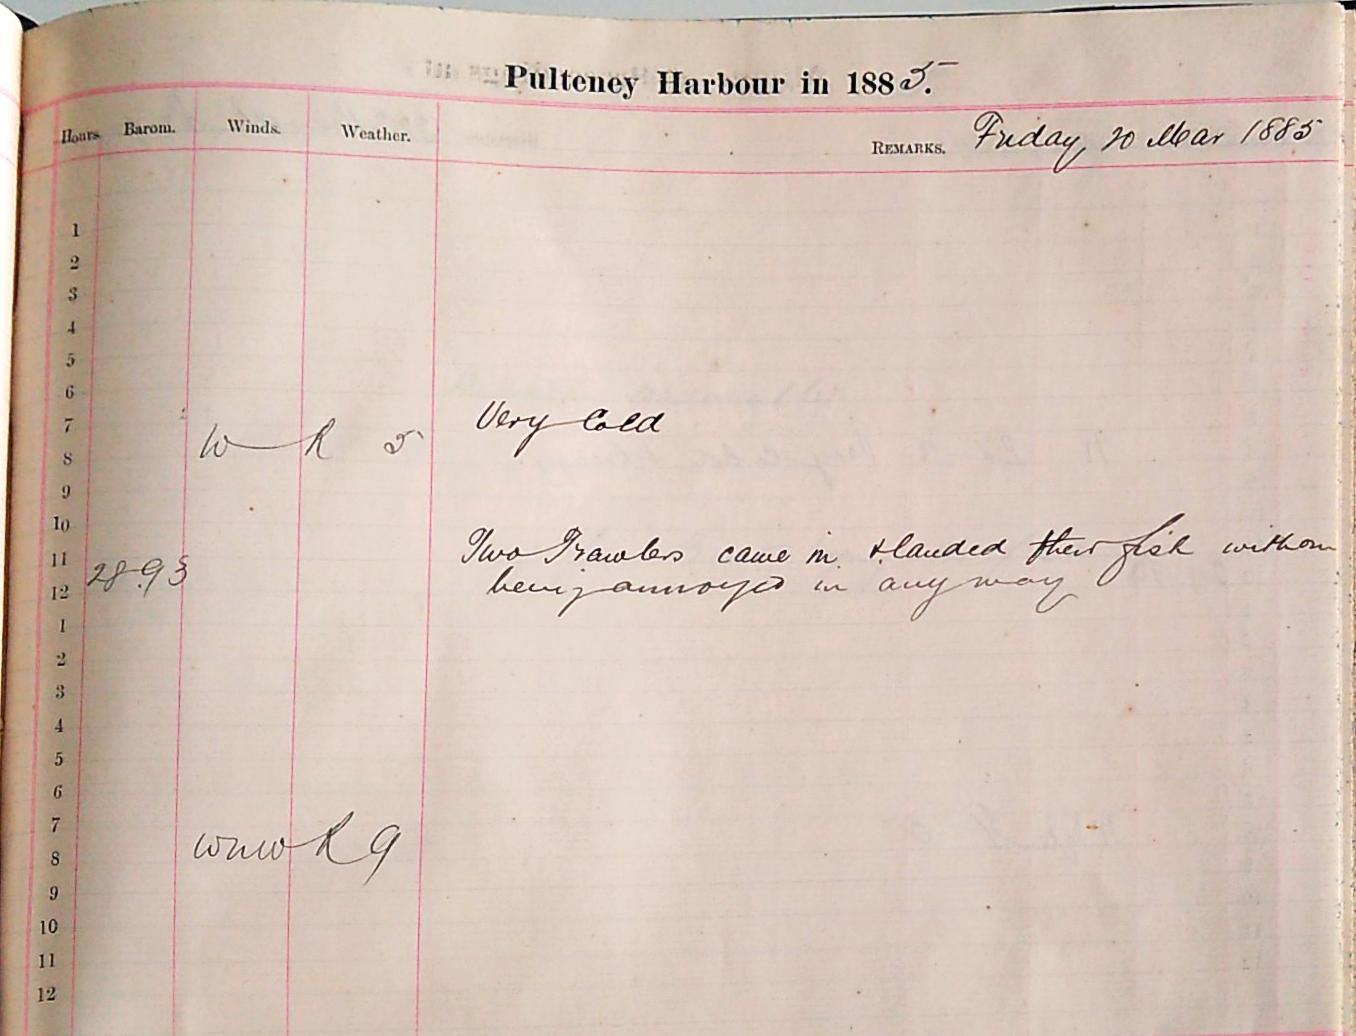 Pulteney Harbour in 1885.
Hours. Barom. Winds. Weather. REMARKS. Friday, 20 Mar 1885
1
2
3
4
5
6
7 Very Cold
8 W R 5
9
10
11 Two Trawlers came in & landed their fish withou
12 28.93 being annoyed in any way
1
2
3
4
5
6
7
8 WNW R 9
9
10
11
12